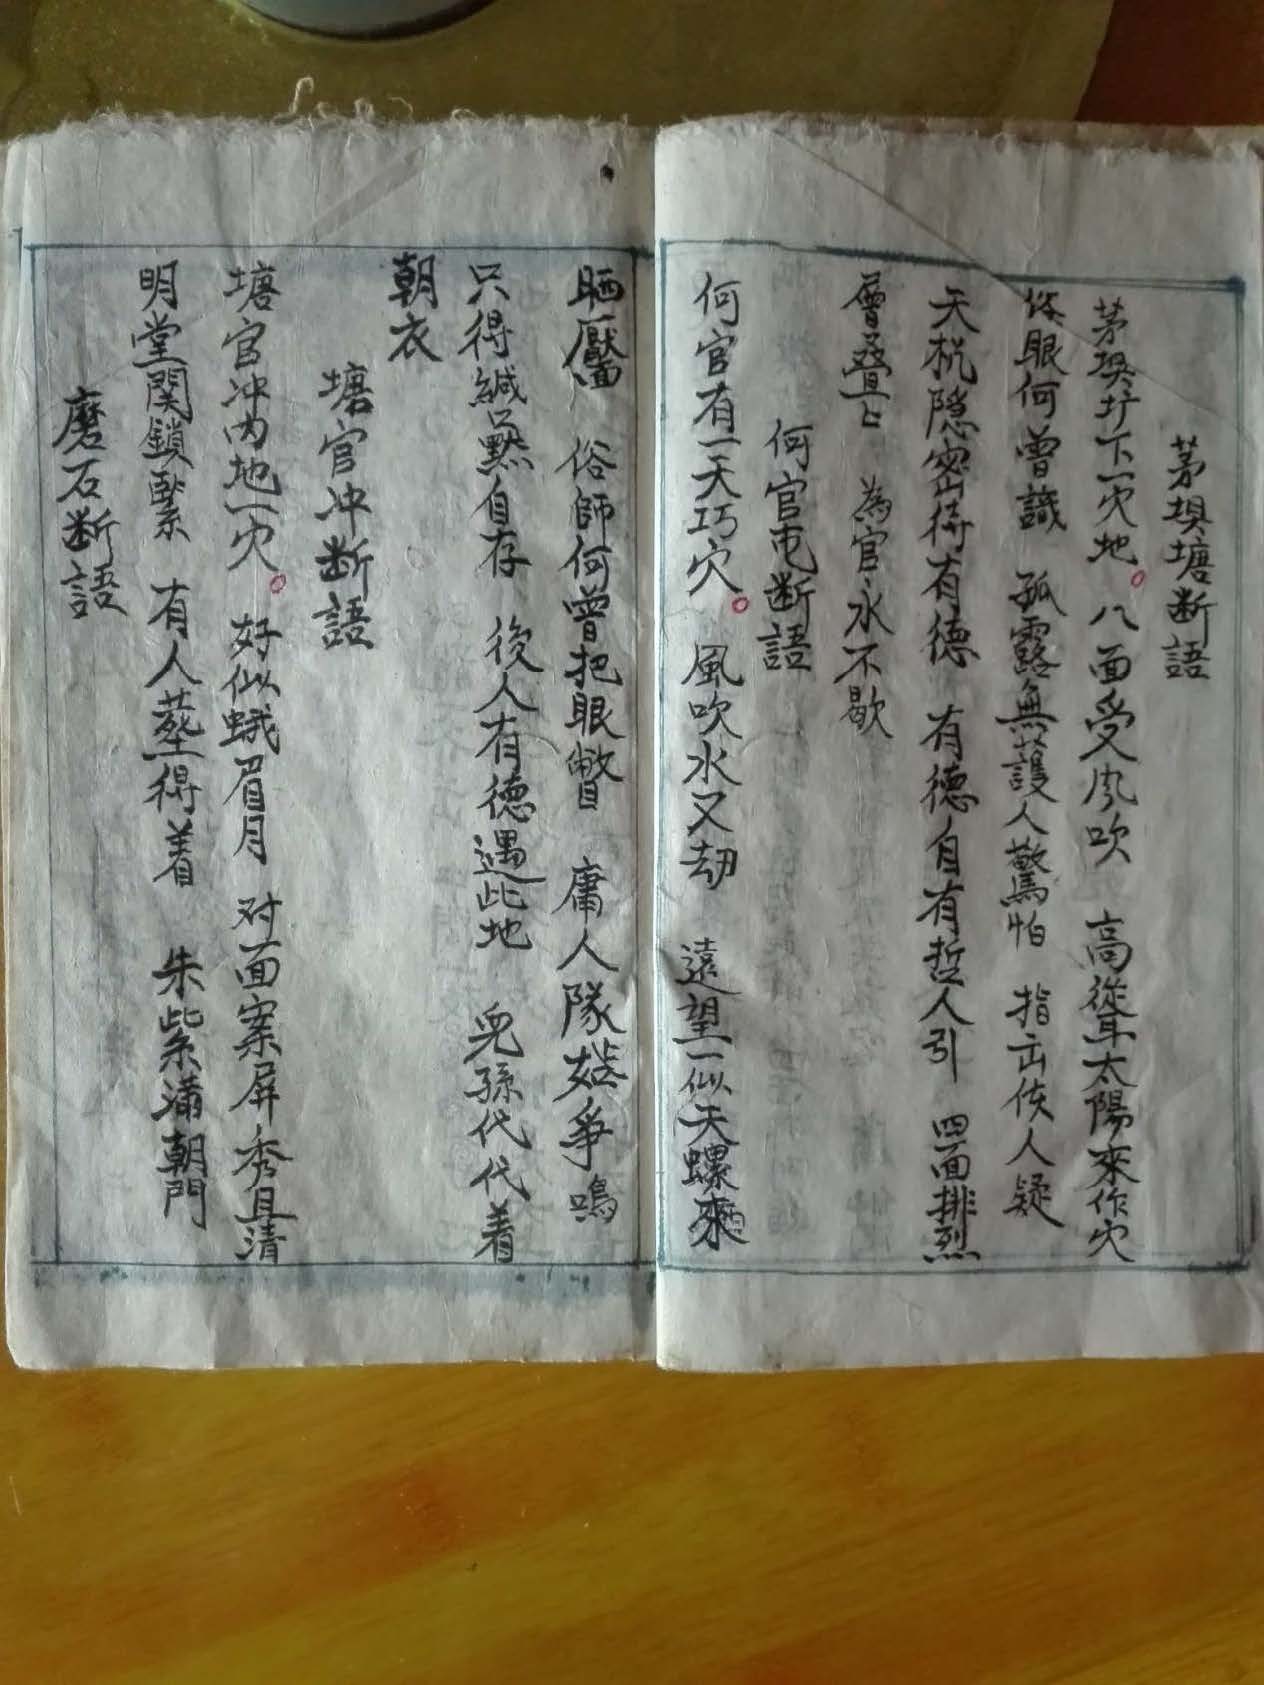 茅塤塘断語
茅塤圢下一穴地。八面受风吹 高從耳太陽來作穴
俗眼何曾識 孤露無護人驚怕 指出侅人疑
天机隐密待有德 有德自有哲人引 四面排烈
層叠 為官永不歇
何官屯断語
何官有一天巧穴。風吹水又劫 遠望一似天螺來
晒靨 俗師何曾把眼瞥 庸人隊 爭鳴
只得緘默自存 後人有德遇此地 児孫代代着
朝衣
塘官冲断語
塘官冲內地一穴。好似蛾眉月 对面案屏秀且清
明堂関鎖緊 有人塟得着 朱紫滿朝門
磨石断語